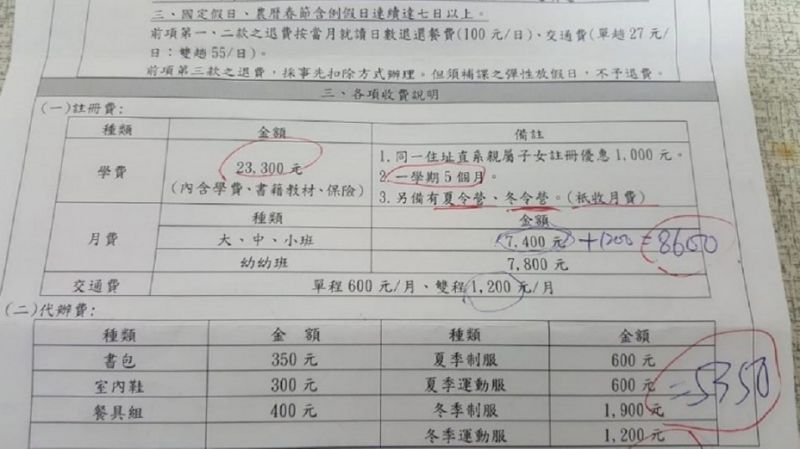 三、國定假日、農曆春節含例假日連續達七日以上。
前項第一、二款之退費按當月就讀日數退還餐費(100元/日)、交通費(單趟27元/
日；雙趟55/日)。
前項第三款之退費，採事先扣除方式辦理。但須補課之彈性放假日，不予退費。
三、各項收費說明
(一)註冊費：
種類 金額 備註
學費 23,300元 (內含學費、書籍教材、保險)
1.同一住址直系親屬子女註冊優惠1,000元。
2.一學期5個月。
3.另備有夏令營、冬令營。(祇收月費)
月費 種類 金額
大、中、小班 7,400元 +1200=8600
幼幼班 7,800元
交通費 單程600元/月、雙程1,200元/月
(二)代辦費：
種類 金額 種類 金額
書包 350元 夏季制服 600元
室內鞋 300元 夏季運動服 600元 =5350
餐具組 400元 冬季制服 1,900元
冬季運動服 1,200元